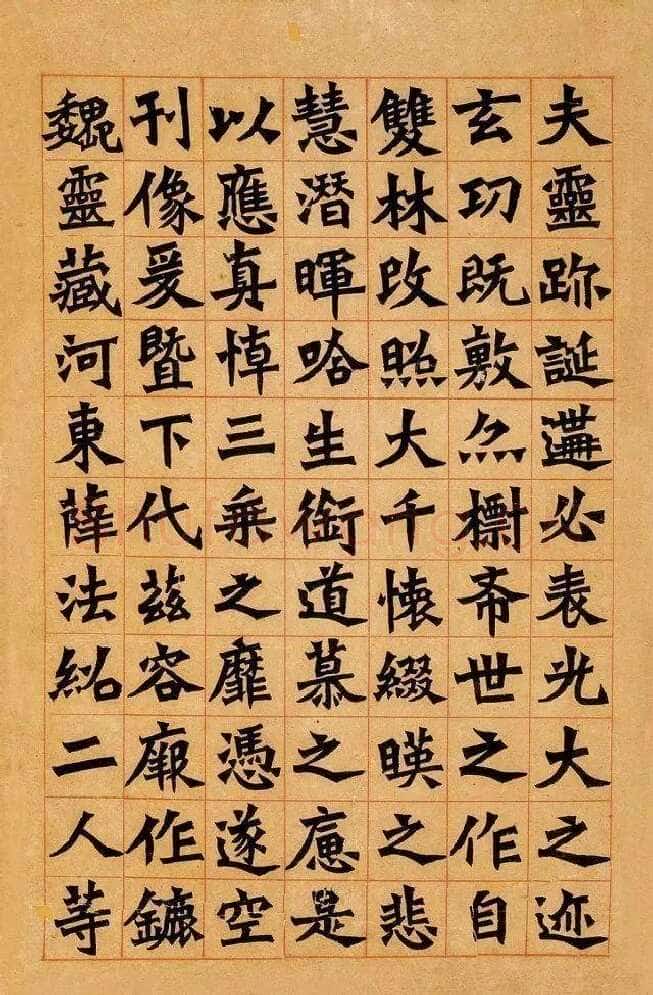 夫靈跡誕遘必表光大之迹
玄功既敷亦標希世之作自
雙林改照大千懷綴暎之悲
慧潛暉哈生銜道慕之是
以應真悼三乘之靡憑遂空
刊像爰暨下代茲容厥作鑣
魏靈藏河東薛法紹二人等